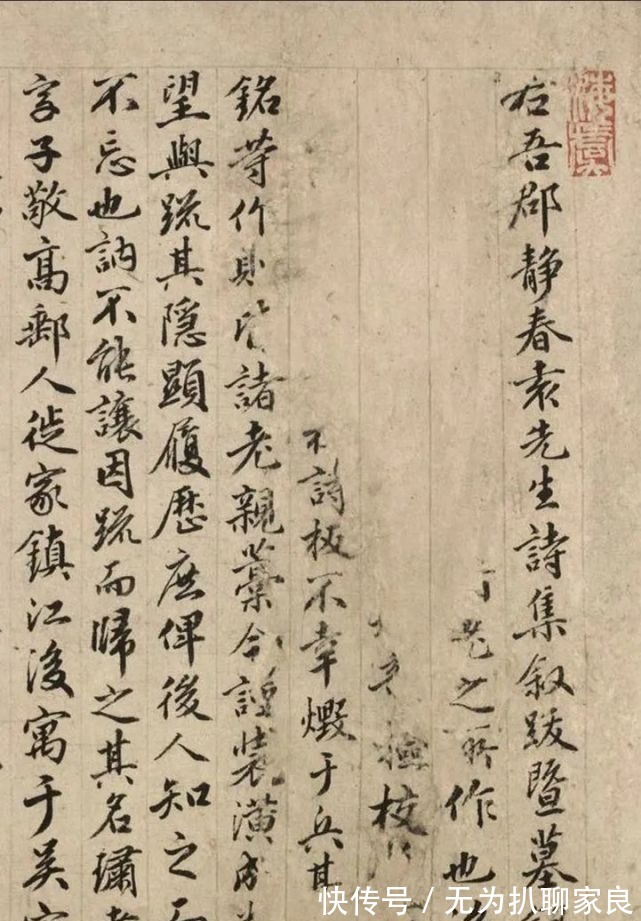 右吾郡静春袁先生詩集叙跋暨墓
之所作也
校
不詩板不幸燬于兵其
銘等作則皆諸老親藁今謹装潢成
望與疏其隱顯履歷庶俾後人知之而
不忘也訥不能讓因疏而歸之其名璛
言子敬高郵人徙家鎮江後寓于吴
快传号/无为扒聊家良